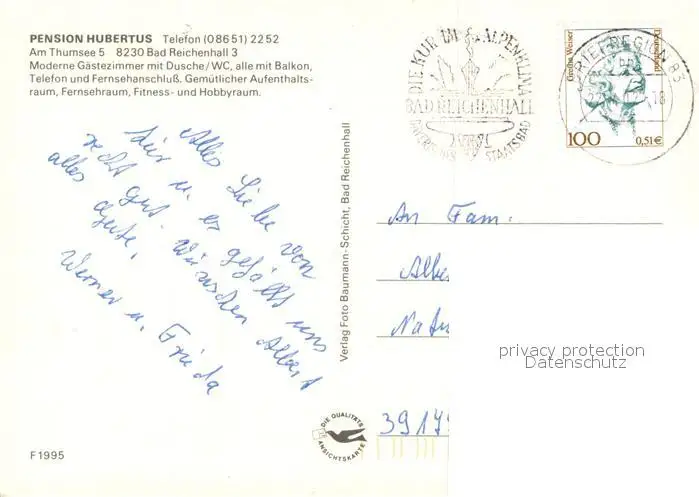 PENSION HUBERTUS Telefon (08651) 2252
Am Thumsee 5 8230 Bad Reichenhall 3
Moderne Gästezimmer mit Dusche/WC, alle mit Balkon,
Telefon und Fernsehanschluß. Gemütlicher Aufenthalts-
raum, Fernsehraum, Fitness- und Hobbyraum.
Alles Liebe von
hier u. es gefällt uns
recht gut wünschen Albert
alles Gute,
Werner u. Frieda
F 1995
Verlag Foto Baumann-Schicht, Bad Reichenhall
DIE QUALITÄTS
ANSICHTSKARTE
DIE KUR IM ALPENKLIMA
BAD REICHENHALL
STAATSBAD
BRIEFREGION 83
Grethe Weiser
Deutschland
100
0,51€
An Fam.
Albe
Natu
3917
privacy protection
Datenschutz